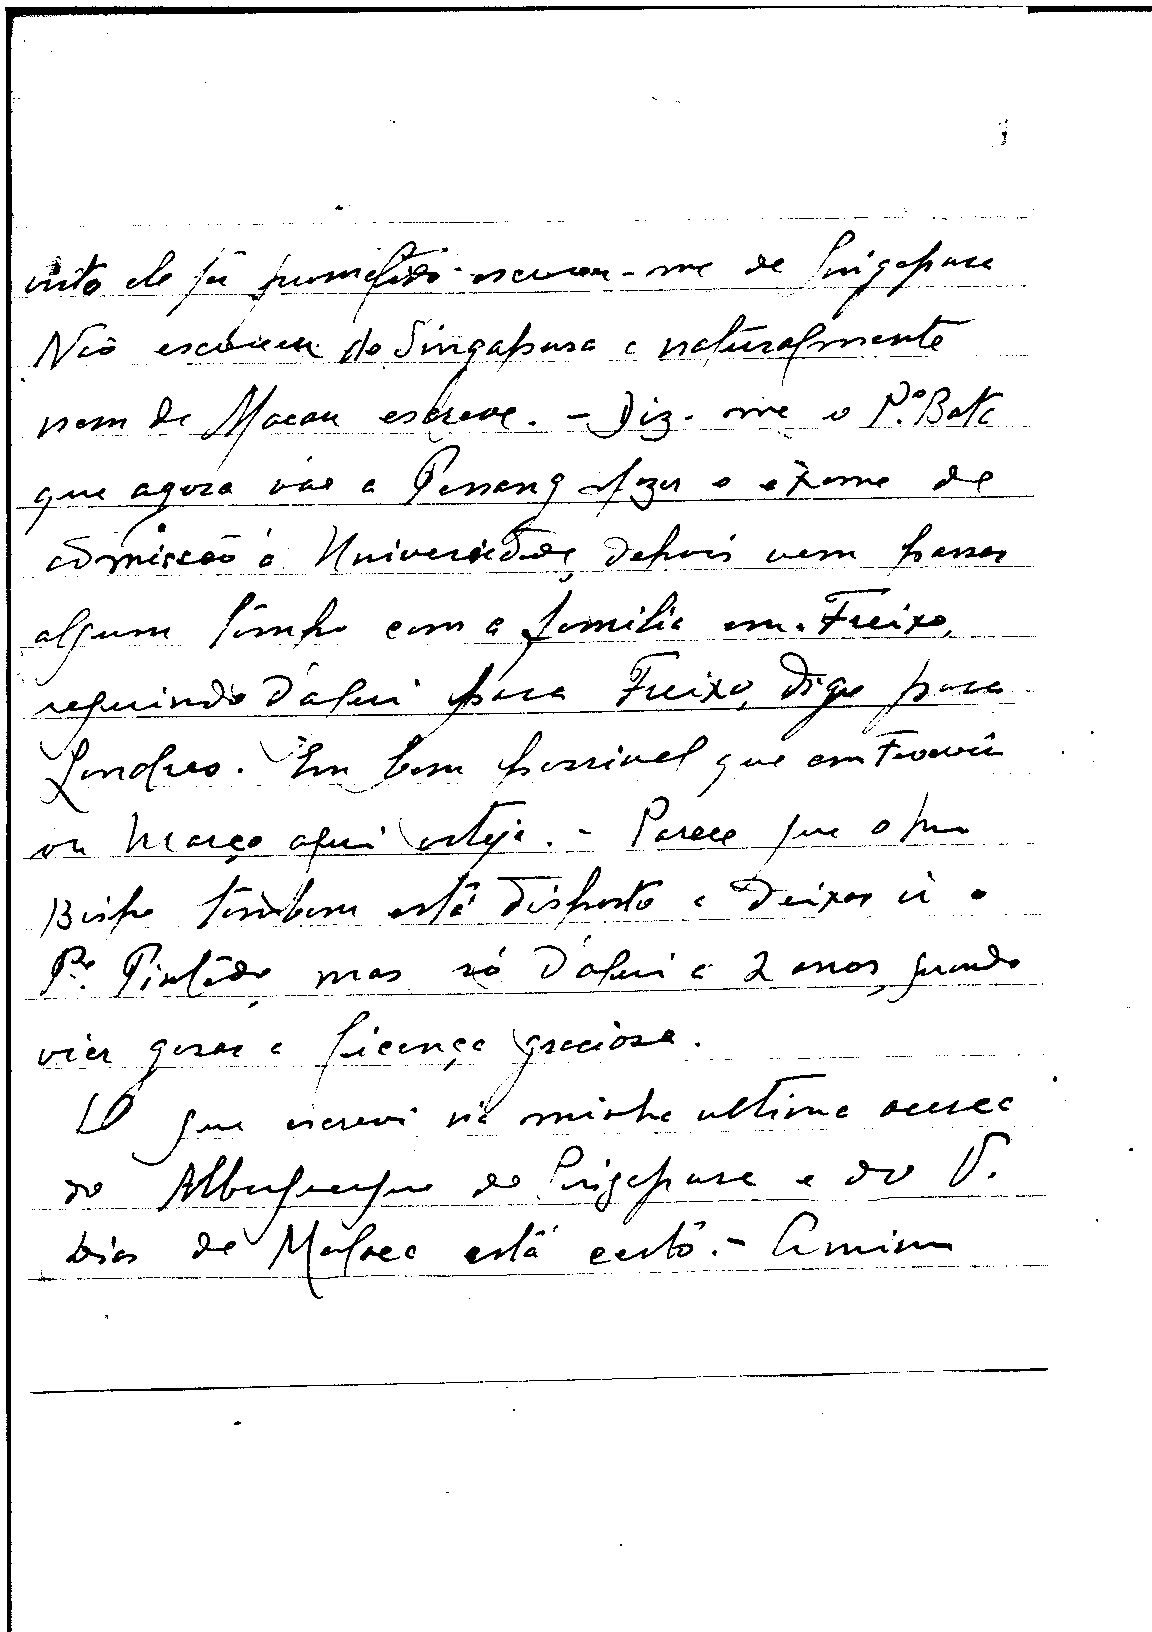 visto ele ter prometido escrever-me de Singapura
Não escreveu de Singapura e naturalmente
nem de Macau escreve. - Diz-me o P.e Bata
que agora vae a Penang fazer o exame de
admissão á Universidade, depois vem passar
algum tempo com a familia em Freixo,
seguindo d'aqui para Freixo, digo para
Londres. É bem possivel que em Fevereiro
ou Março aqui esteja. - Parece que o
Bispo tambem está disposto a deixar ir o
P.e Pintado, mas só d'aqui a 2 anos, quando
vier gosar a licença graciosa.
O que escrevi na minha ultima acerca
do Albuquerque de Singapura e do P.
Dias de Malaca está certo. - A mim